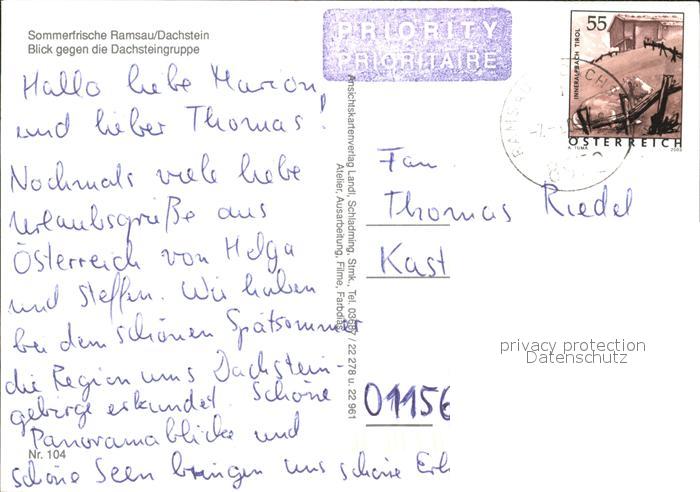 Sommerfrische Ramsau/Dachstein
Blick gegen die Dachsteingruppe
Hallo liebe Marion,
und lieber Thomas!
Nochmals viele liebe
Urlaubsgrüße aus
Österreich von Helga
und Steffen. Wir haben
bei dem schönen Spätsommer
die Region ums Dachstein-
gebirge erkundet. Schöne
Panoramablicke und
schöne Seen bringen uns schöne Erh
Nr. 104
Ansichtskartenverlag Landl, Schladming, Stmk., Tel. 03687 / 22 278 u. 22 961
Atelier, Ausarbeitung, Filme, Farbdias
PRIORITY
PRIORITAIRE
55
INNERALPBACH TIROL
ÖSTERREICH
A. TUMA
2003
Fam.
Thomas Riedel
Kast
01156
privacy protection
Datenschutz